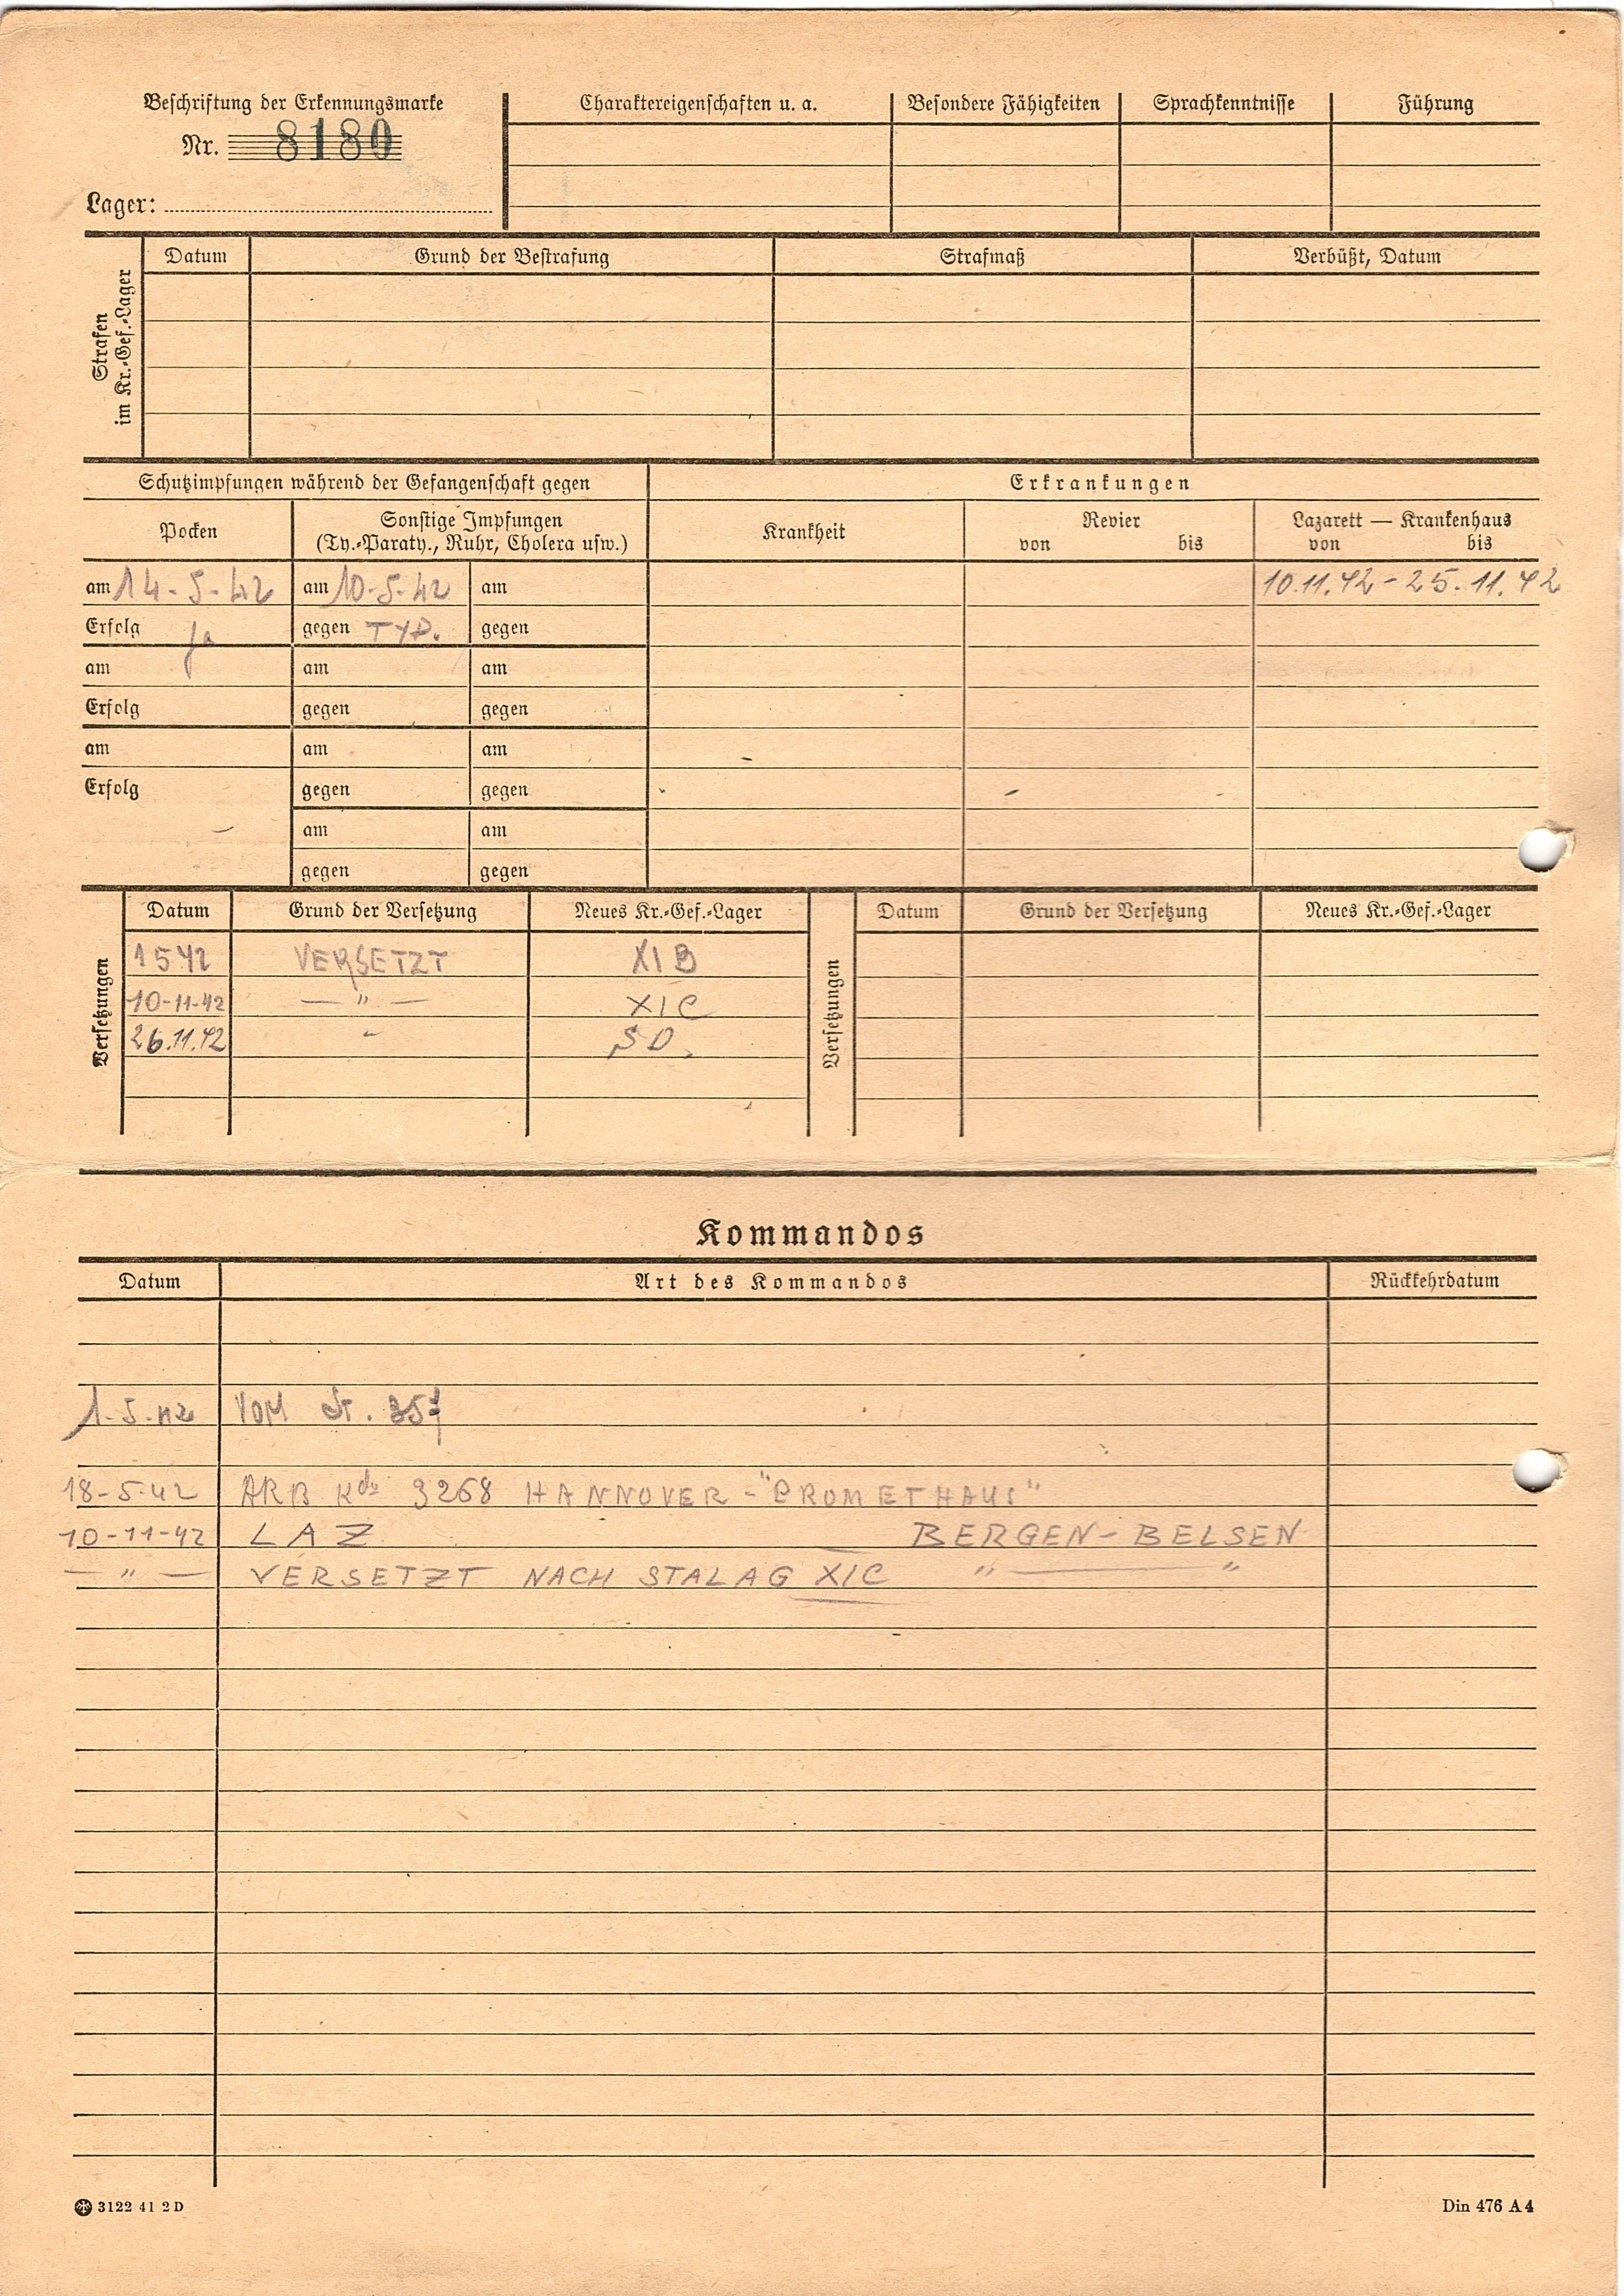 Beschriftung der Erkennungsmarke
Nr. 8180
Lager:
Charaktereigenschaften u. a. Besondere Fähigkeiten Sprachkenntnisse Führung
Strafen
im Kr.-Gef.-Lager
Datum Grund der Bestrafung Strafmaß Verbüßt, Datum
Schutzimpfungen während der Gefangenschaft gegen
Erkrankungen
Pocken
Sonstige Impfungen
(Ty.-Paraty., Ruhr, Cholera usw.)
Krankheit
Revier
von bis
Lazarett — Krankenhaus
von bis
am 14-5-42 am 10-5-42 am 10.11.42 - 25.11.42
Erfolg ja gegen TYP. gegen
am am am
Erfolg gegen gegen
am am am
Erfolg gegen gegen
am am
gegen gegen
Versetzungen
Datum Grund der Versetzung Neues Kr.-Gef.-Lager
1 5 42 VERSETZT XI B
10-11-42 — " — XI C
26.11.42 " SD.
Versetzungen
Datum Grund der Versetzung Neues Kr.-Gef.-Lager
Kommandos
Datum Art des Kommandos Rückkehrdatum
1.5.42 VOM St. 357
18-5-42 ARB Kdo 3268 HANNOVER - "PROMETHAUS"
10-11-42 LAZ BERGEN-BELSEN
— " — VERSETZT NACH STALAG XIC " — "
3122 41 2 D
Din 476 A 4